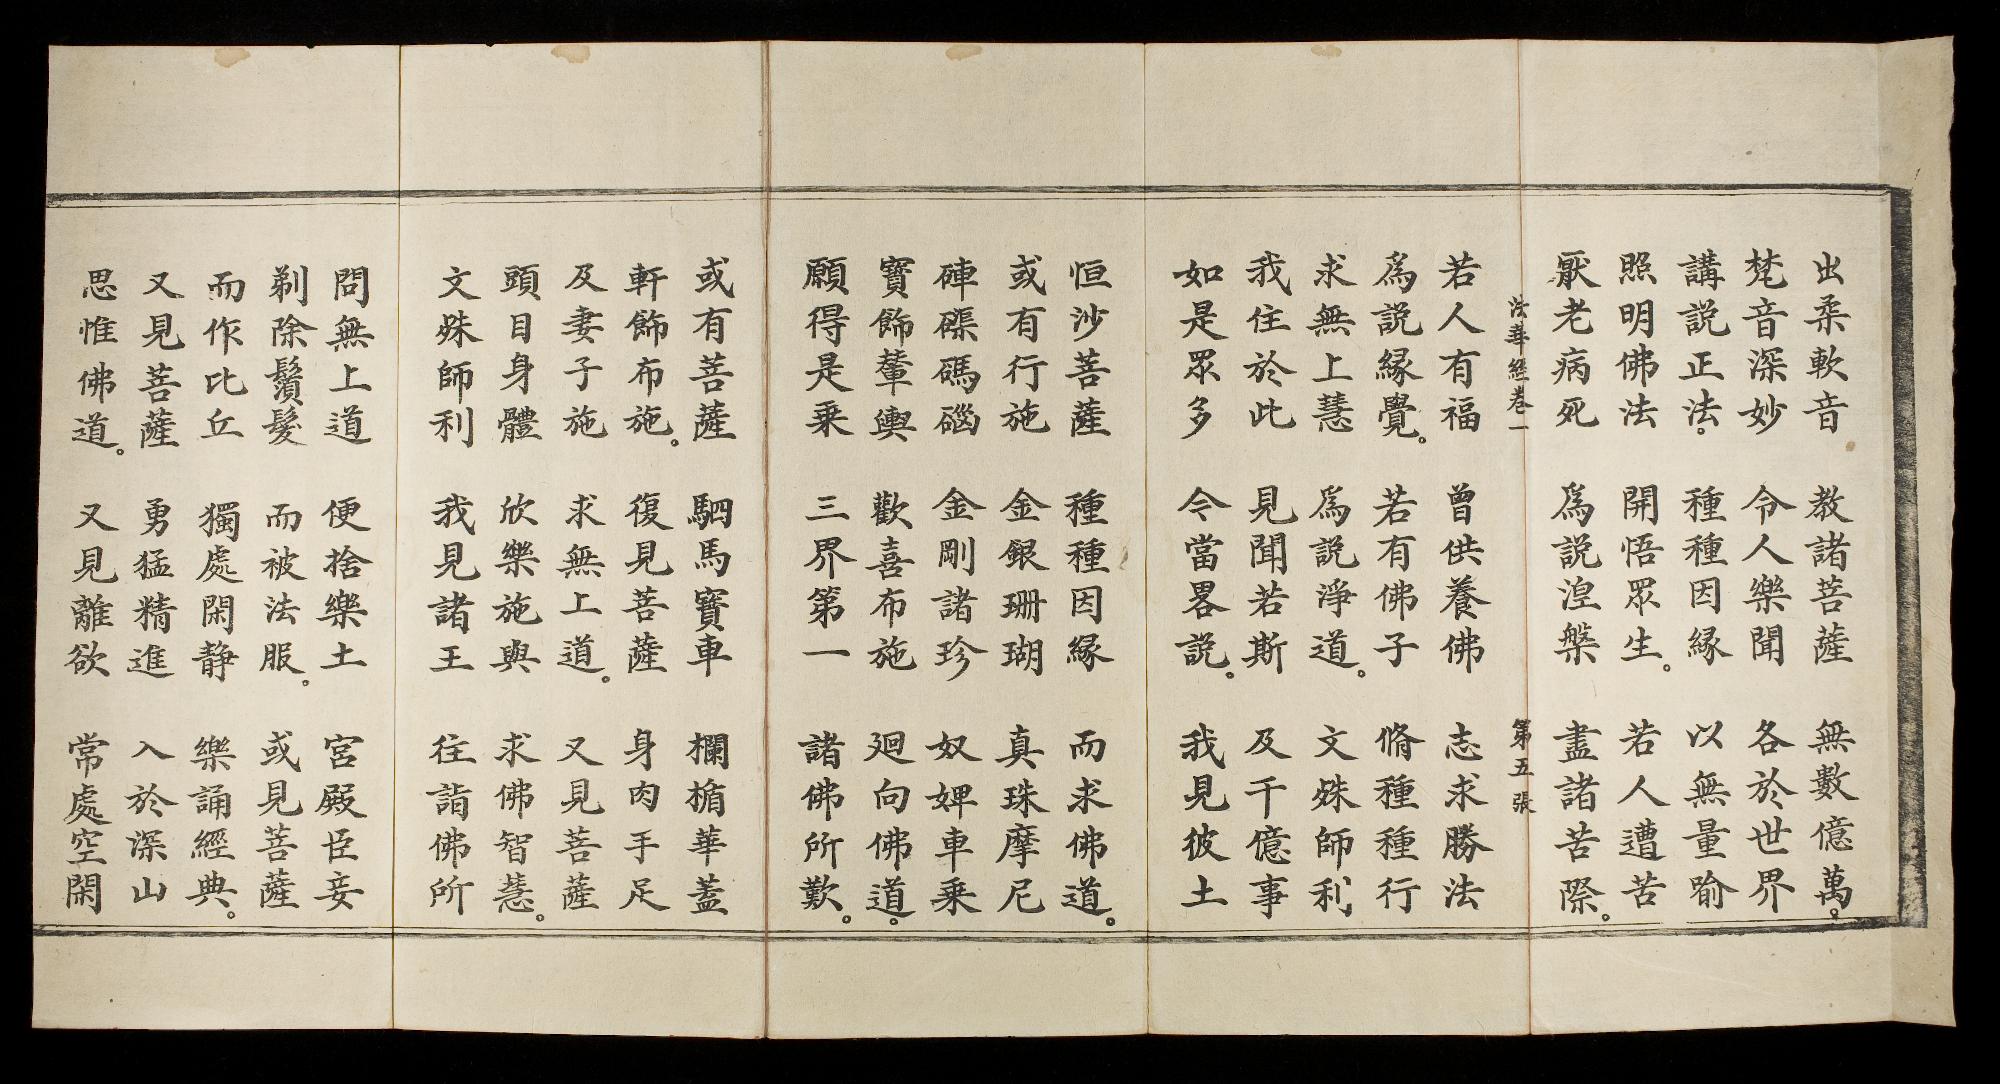 出柔軟音　教諸菩薩　無數億萬。
梵音深妙　令人樂聞　各於世界
講説正法。種種因縁　以無量喻
照明佛法　開悟眾生。若人遭苦
厭老病死　爲説湼槃　盡諸苦際。
法華經卷一　第五張
若人有福　曾供養佛　志求勝法
爲説縁覺。若有佛子　脩種種行
求無上慧　爲説淨道。文殊師利
我住於此　見聞若斯　及千億事
如是眾多　今當畧説。我見彼土
恒沙菩薩　種種因縁　而求佛道。
或有行施　金銀珊瑚　真珠摩尼
硨磲碼碯　金剛諸珍　奴婢車乗
寶飾輦輿　歡喜布施　廻向佛道。
願得是乗　三界第一　諸佛所歎。
或有菩薩　駟馬寶車　欄楯華蓋
軒飾布施。復見菩薩　身肉手足
及妻子施　求無上道。又見菩薩
頭目身體　欣樂施與　求佛智慧。
文殊師利　我見諸王　往詣佛所
問無上道　便捨樂土　宮殿臣妾
剃除鬚髮　而被法服。或見菩薩
而作比丘　獨處閑静　樂誦經典。
又見菩薩　勇猛精進　入於深山
思惟佛道。又見離欲　常處空閑